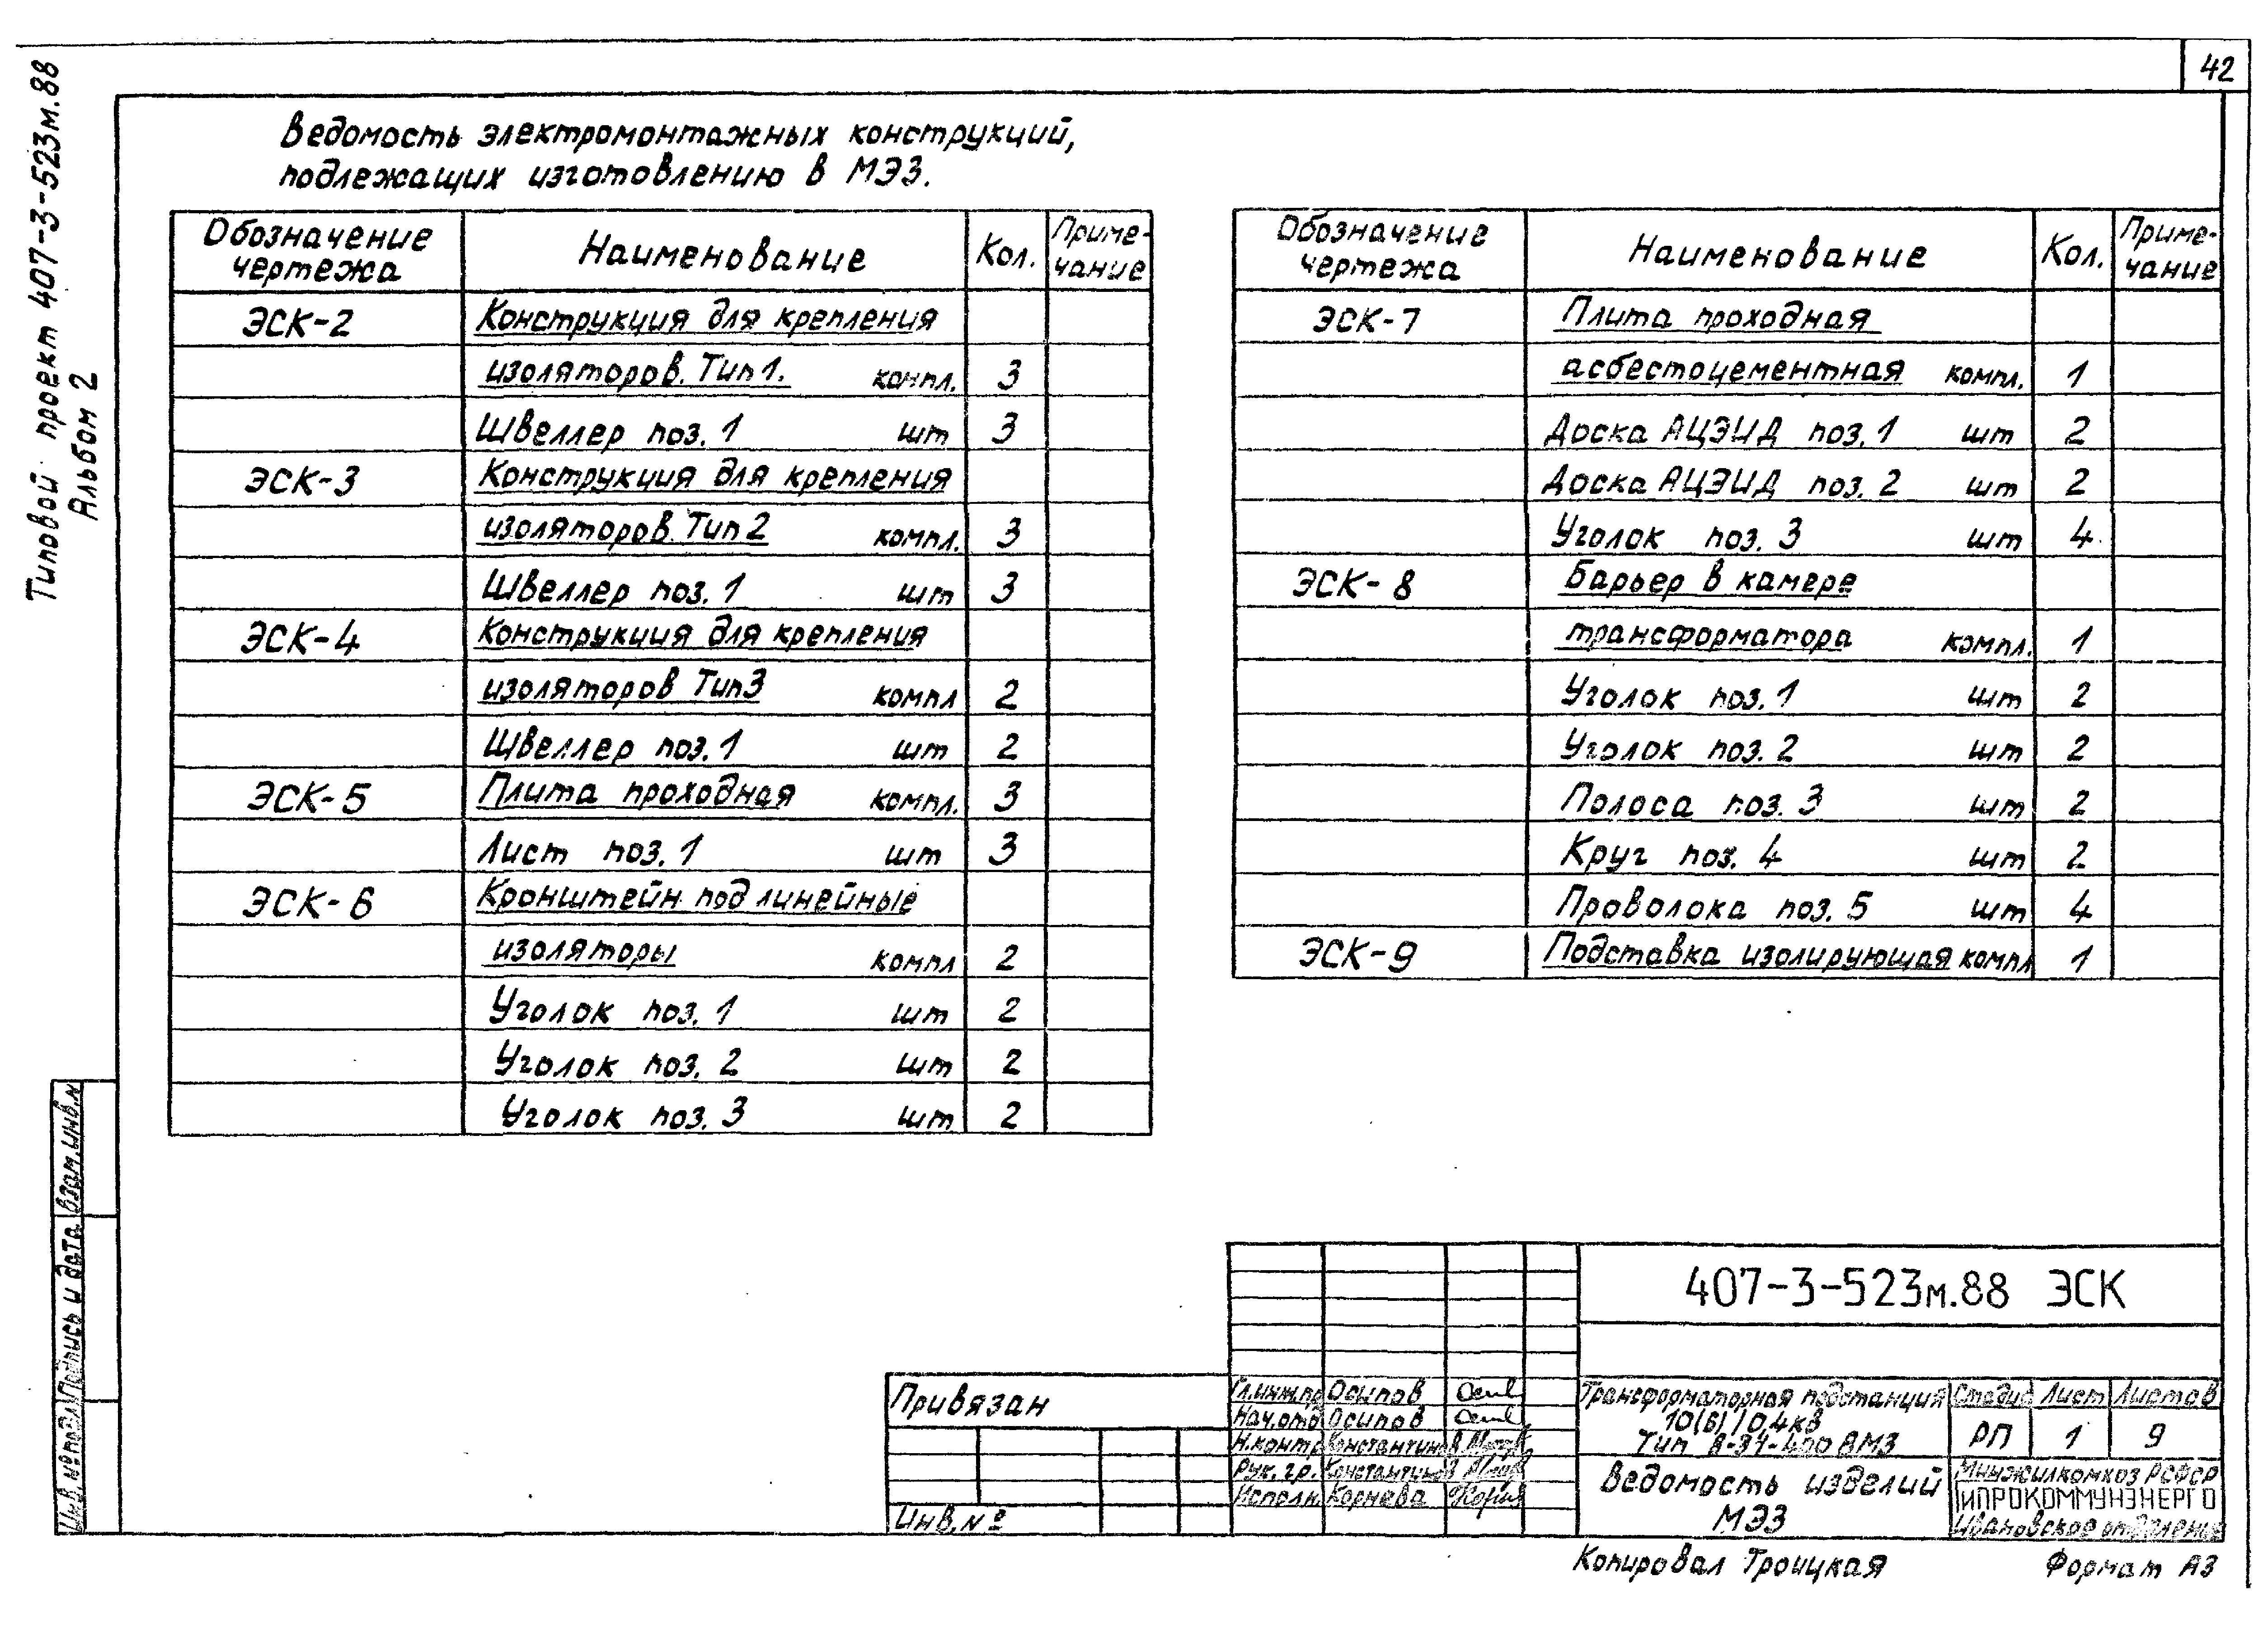 42
Типовой проект 407-3-523м.88
Альбом 2
Ведомость электромонтажных конструкций,
подлежащих изготовлению в МЭЗ.
Обозначение чертежа Наименование Кол. Приме-чание
ЭСК-2 Конструкция для крепления
изоляторов. Тип 1. компл. 3
Швеллер поз. 1 шт 3
ЭСК-3 Конструкция для крепления
изоляторов. Тип 2 компл. 3
Швеллер поз. 1 шт 3
ЭСК-4 Конструкция для крепления
изоляторов Тип 3 компл 2
Швеллер поз. 1 шт 2
ЭСК-5 Плита проходная компл. 3
Лист поз. 1 шт 3
ЭСК-6 Кронштейн под линейные
изоляторы компл 2
Уголок поз. 1 шт 2
Уголок поз. 2 шт 2
Уголок поз. 3 шт 2
Обозначение чертежа Наименование Кол. Приме-чание
ЭСК-7 Плита проходная
асбестоцементная компл. 1
Доска АЦЭИД поз. 1 шт 2
Доска АЦЭИД поз. 2 шт 2
Уголок поз. 3 шт 4
ЭСК-8 Барьер в камере
трансформатора компл. 1
Уголок поз. 1 шт 2
Уголок поз. 2 шт 2
Полоса поз. 3 шт 2
Круг поз. 4 шт 2
Проволока поз. 5 шт 4
ЭСК-9 Подставка изолирующая компл 1
Инв. № подл Подпись и дата Взам. инв. №
407-3-523м.88 ЭСК
Привязан
Инв. №
Гл.инж.пр Осипов
Нач.отд Осипов
Н.контр Константинов
Рук. гр. Константинов
Исполн. Корнева
Трансформаторная подстанция
10(6)/0,4кв
Тип
Стадия Лист Листов
РП 1 9
Ведомость изделий
МЭЗ
Минжилкомхоз РСФСР
ГИПРОКОММУНЭНЕРГО
Ивановское отделение
Копировал Троицкая
Формат А3